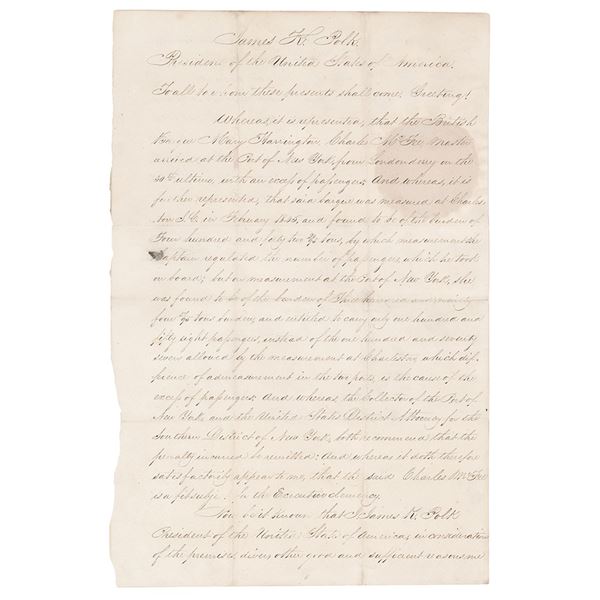 James K. Polk.
President of the United States of America.
To all to whom these presents shall come: Greeting!
Whereas, it is represented, that the British
barque Mary Harrington, Charles McFee, master
arrived at the Port of New York, from Londonderry on the
ultimo, with an excess of passengers, and whereas, it is
further represented, that said barque was measured at Charles-
ton S. C. in February 1845, and found to be of the burden of
Four hundred and forty two tons, by which measurement the
Captain regulated the number of passengers which he took
on board; but on measurement at the Port of New York, she
was found to be of the burden of Three hundred and ninety
four tons burden, and entitled to carry only one hundred and
fifty eight passengers, instead of the one hundred and seventy
seven allowed by the measurement at Charleston, which dif-
ference of admeasurement in the two ports, is the cause of the
excess of passengers: And whereas, the Collector of the Port of
New York, and the United States District Attorney for the
Southern District of New York, both recommend that the
penalty incurred be remitted: And whereas it doth therefore
satisfactorily appear to me, that the said Charles McFee
is a fit subject for the Executive clemency,
Now be it known that I, James K. Polk
President of the United States of America, in consideration
of the premises, divers other good and sufficient reasons me